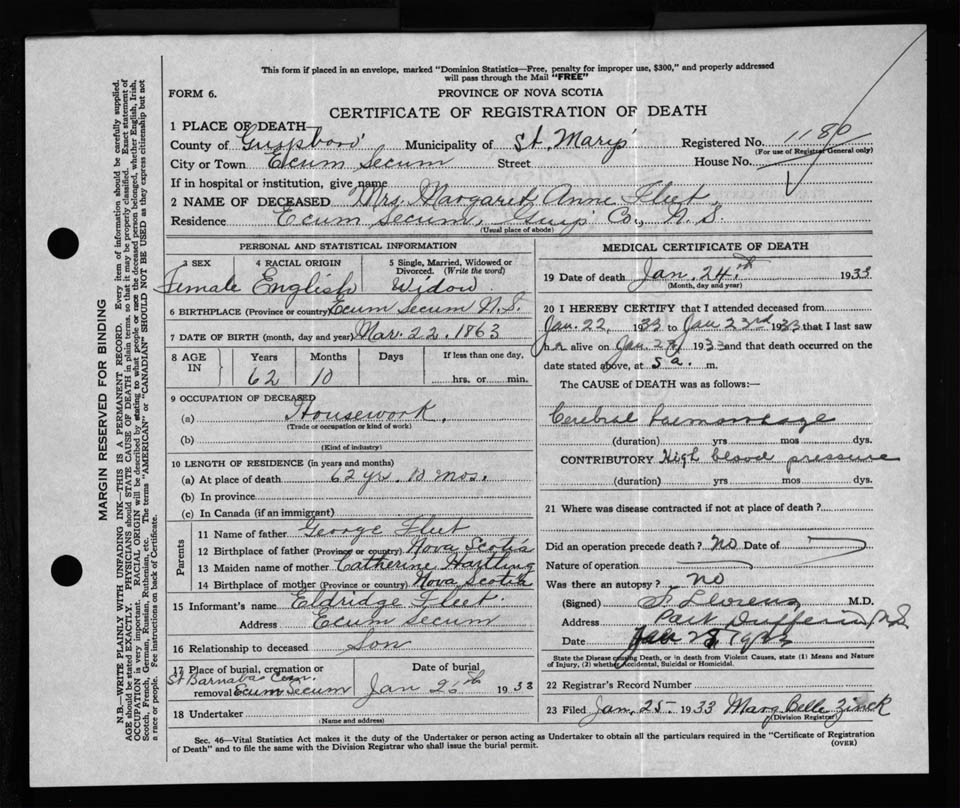 This form if placed in an envelope, marked "Dominion Statistics—Free, penalty for improper use, $300," and properly addressed
will pass through the Mail "FREE"
FORM 6.
PROVINCE OF NOVA SCOTIA
CERTIFICATE OF REGISTRATION OF DEATH
1 PLACE OF DEATH—
County of Guysboro' Municipality of St. Mary's Registered No. 1180
(For use of Registrar General only)
City or Town Ecum Secum Street House No.
If in hospital or institution, give name
2 NAME OF DECEASED Mrs. Margaret Anne Fleet
Residence Ecum Secum, Guys' Co., N. S.
(Usual place of abode)
PERSONAL AND STATISTICAL INFORMATION
3 SEX 4 RACIAL ORIGIN 5 Single, Married, Widowed or
Divorced. (Write the word)
Female English Widow
6 BIRTHPLACE (Province or country) Ecum Secum N.S.
7 DATE OF BIRTH (month, day and year) Mar. 22. 1863
8 AGE IN Years Months Days If less than one day,
62 10 hrs. or min.
9 OCCUPATION OF DECEASED
(a) Housework.
(Trade or occupation or kind of work)
(b)
(Kind of industry)
10 LENGTH OF RESIDENCE (in years and months)
(a) At place of death 62 yr. 10 mos.
(b) In province
(c) In Canada (if an immigrant)
Parents
11 Name of father George Fleet
12 Birthplace of father (Province or country) Nova Scotia
13 Maiden name of mother Catherine Hartling
14 Birthplace of mother (Province or country) Nova Scotia
15 Informant's name Eldridge Fleet.
Address Ecum Secum
16 Relationship to deceased Son
17 Place of burial, cremation or Date of burial
St Barnabas Cem.
removal Ecum Secum Jan 26th 1933
18 Undertaker
(Name and address)
MEDICAL CERTIFICATE OF DEATH
19 Date of death Jan. 24.th 1933
(Month, day and year)
20 I HEREBY CERTIFY that I attended deceased from
Jan. 22 1933 to Jan 22nd 1933 that I last saw
alive on Jan. 1933 and that death occurred on the
date stated above, at 5 a. m.
The CAUSE of DEATH was as follows:—
Cerebral haemorrhage
(duration) yrs mos dys.
CONTRIBUTORY High blood pressure
(duration) yrs mos dys.
21 Where was disease contracted if not at place of death?
Did an operation precede death? No Date of
Nature of operation
Was there an autopsy? No
(Signed) M.D.
Address Port Dufferin N.S.
Date
State the Disease causing Death, or in death from Violent Causes, state (1) Means and Nature
of Injury, (2) whether Accidental, Suicidal or Homicidal.
22 Registrar's Record Number
23 Filed Jan. 25- 1933 Mary Belle Zinck
(Division Registrar)
Sec. 46—Vital Statistics Act makes it the duty of the Undertaker or person acting as Undertaker to obtain all the particulars required in the "Certificate of Registration
of Death" and to file the same with the Division Registrar who shall issue the burial permit.
(OVER)
MARGIN RESERVED FOR BINDING
N.B.—WRITE PLAINLY WITH UNFADING INK—THIS IS A PERMANENT RECORD. Every item of information should be carefully supplied.
AGE should be stated EXACTLY. PHYSICIANS should STATE CAUSE OF DEATH in plain terms, so that it may be properly classified. Exact statement of
OCCUPATION is very important. RACIAL ORIGIN will be described by stating to what people or race the deceased person belonged, whether English, Irish,
Scotch, French, German, Russian, Ruthenian, etc. The terms "AMERICAN" or "CANADIAN" SHOULD NOT BE USED as they express citizenship but not
a race or people. Fee instructions on back of Certificate.